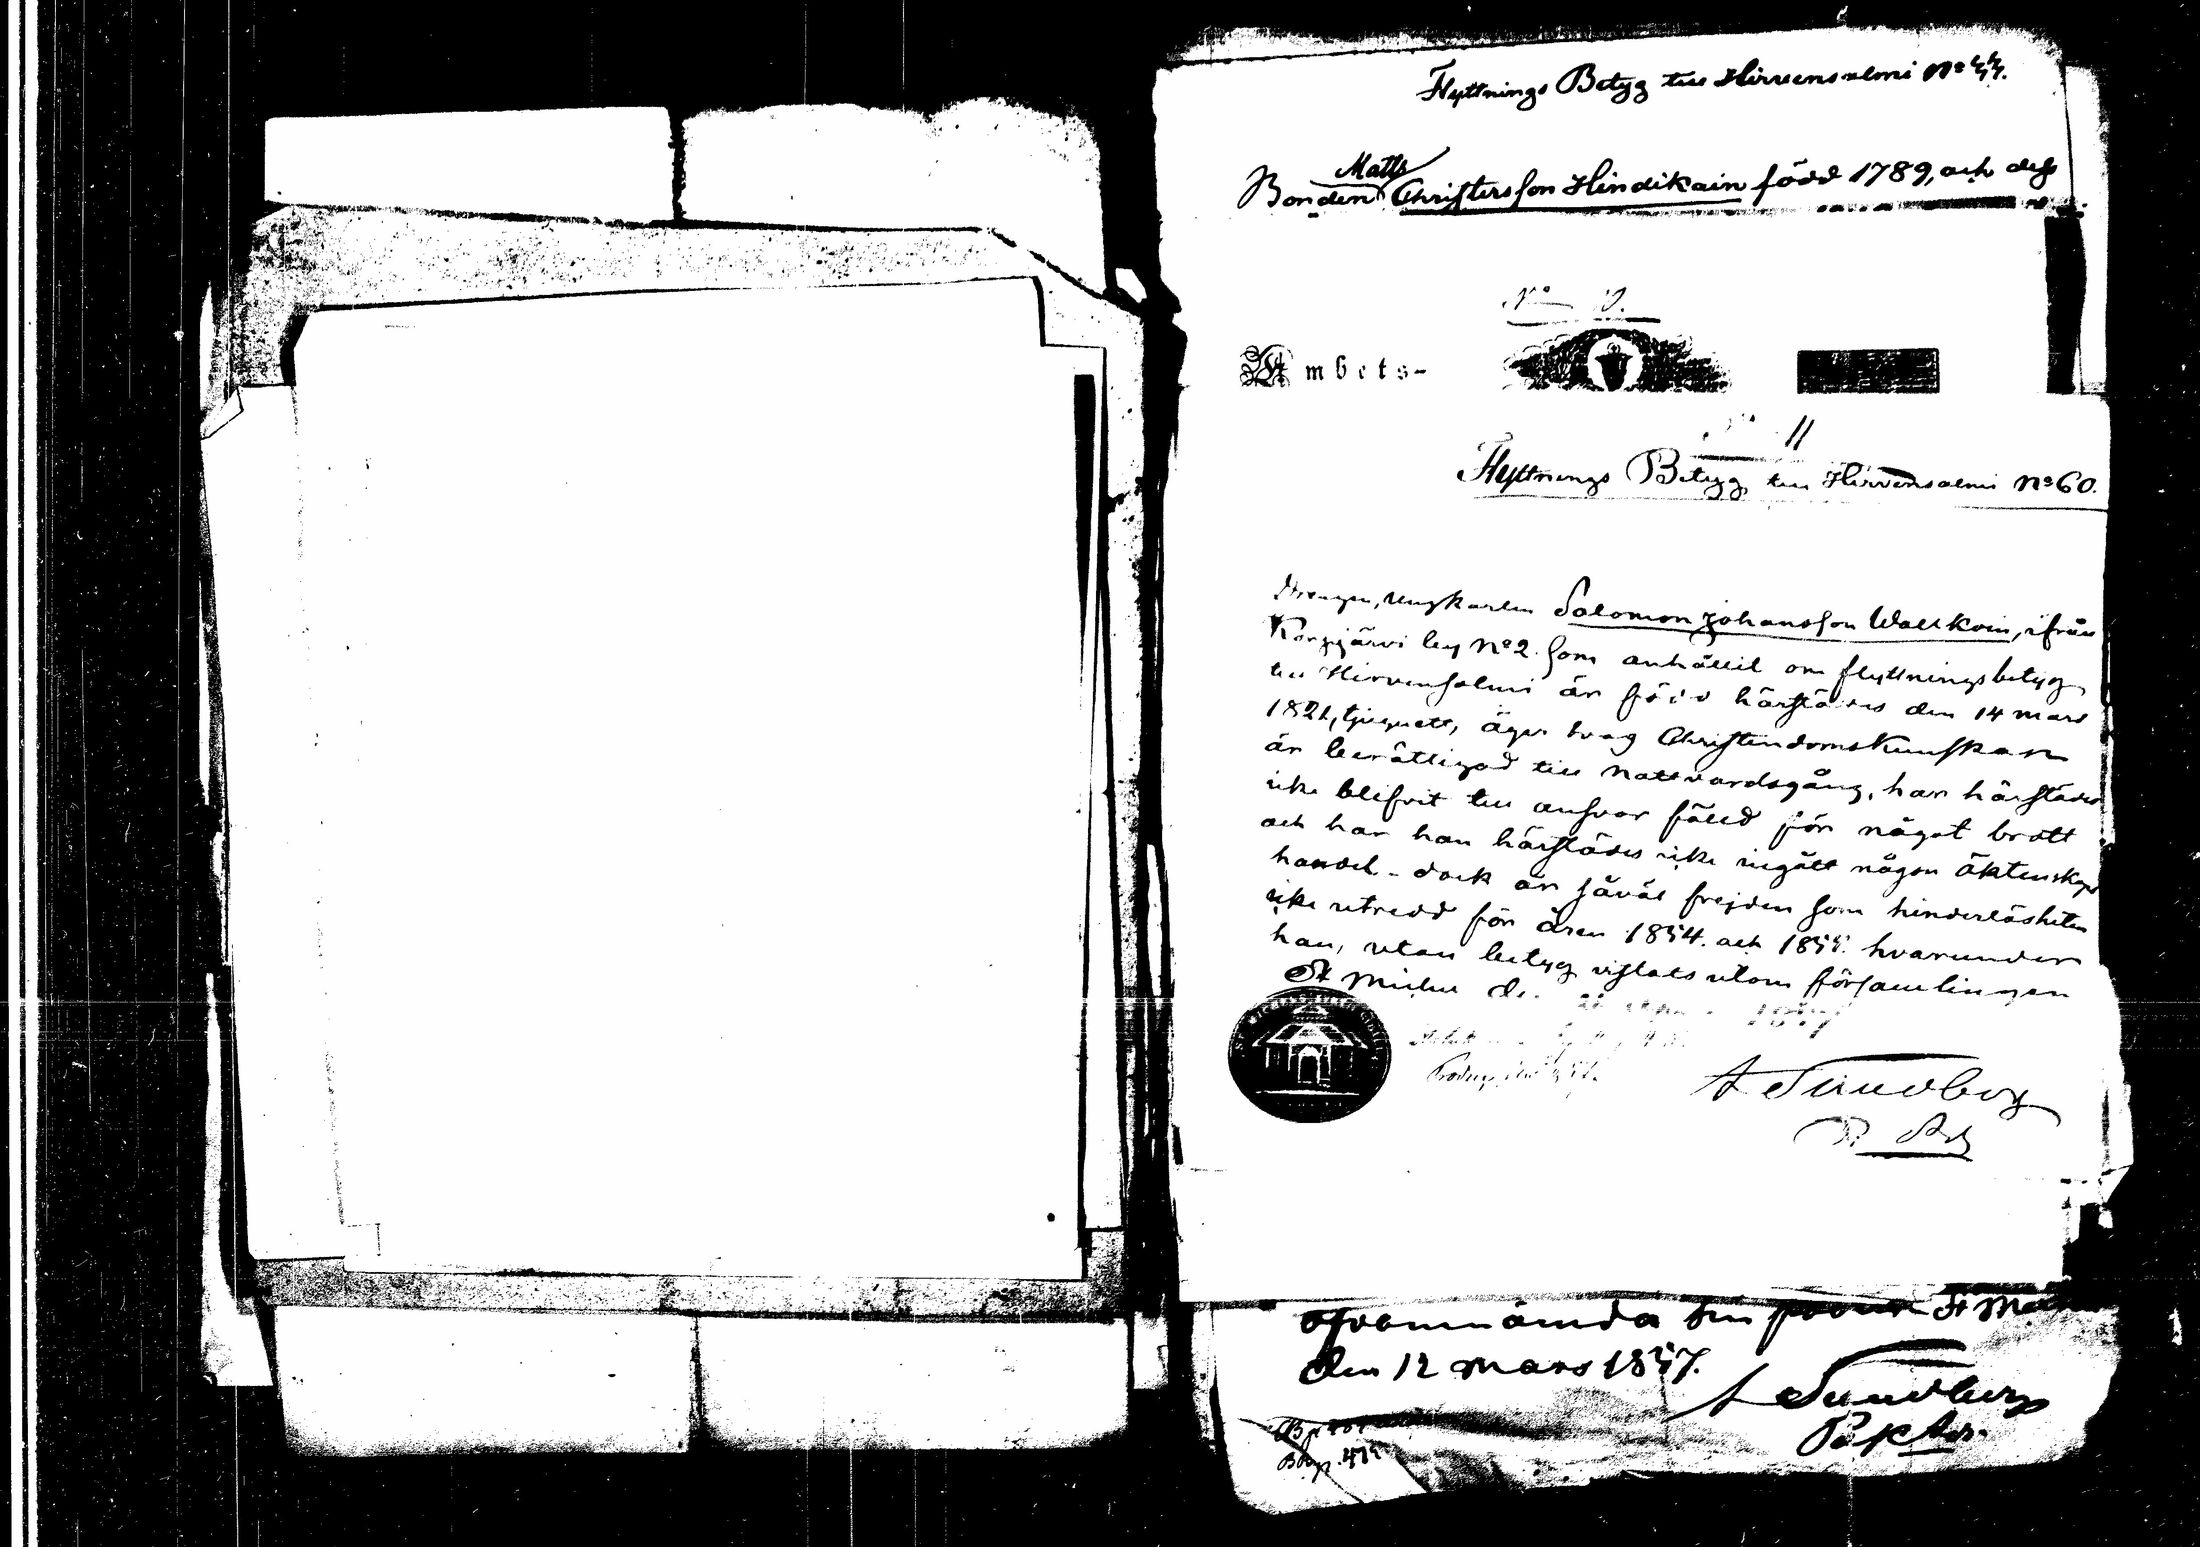 Flyttnings Betyg till Hirvensalmi No 55.
Matts
Bonden Christersson Hindikain född 1789, och dess
No 10.
Ambets-
No 11
Flyttnings Betyg till Hirvensalmi No 60.
Drengen, ungkarlen Salomon Johansson Wattkain, ifrån
Korpijärvi by No 2. som anhållit om flyttningsbetyg
till Hirvensalmi är född härstädes den 14 mars
1821, äger svag Christendomskunskap
är berättigad till nattvardsgång, har härstädes
icke blifvit till ansvar fälld för något brott
och har han härstädes icke ingått någon äktenskaps
handel - dock är såväl frejden som hinderlösheten
icke utredd för åren 1854. och 1855. hvarunder
han, utan betyg vistats utom församlingen
St Michel d.
A Sundberg
ofvannämnda St Mich
den 12 mars 1857.
A Sundberg